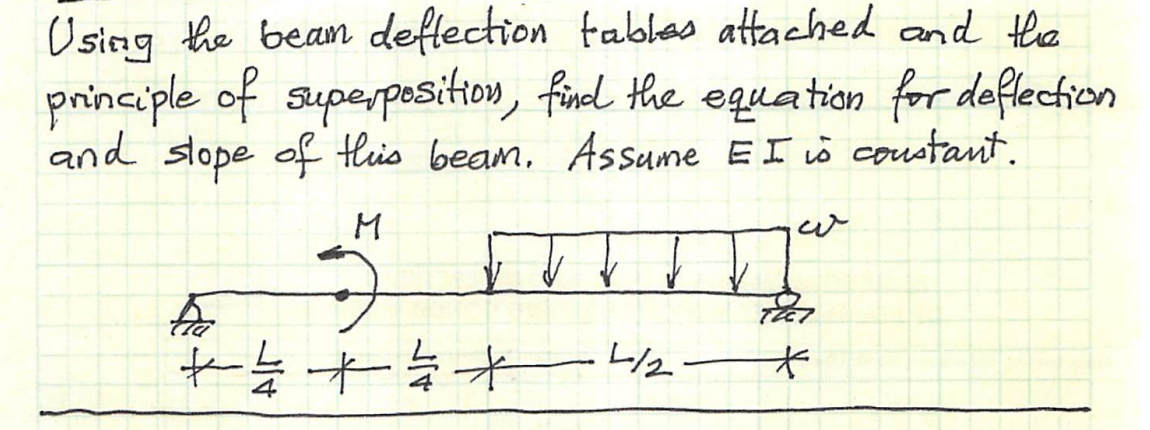 Using the beam deflection tables attached and the
principle of superposition, find the equation for deflection
and slope of this beam. Assume EI is constant.
M
w
L/4 L/4 L/2